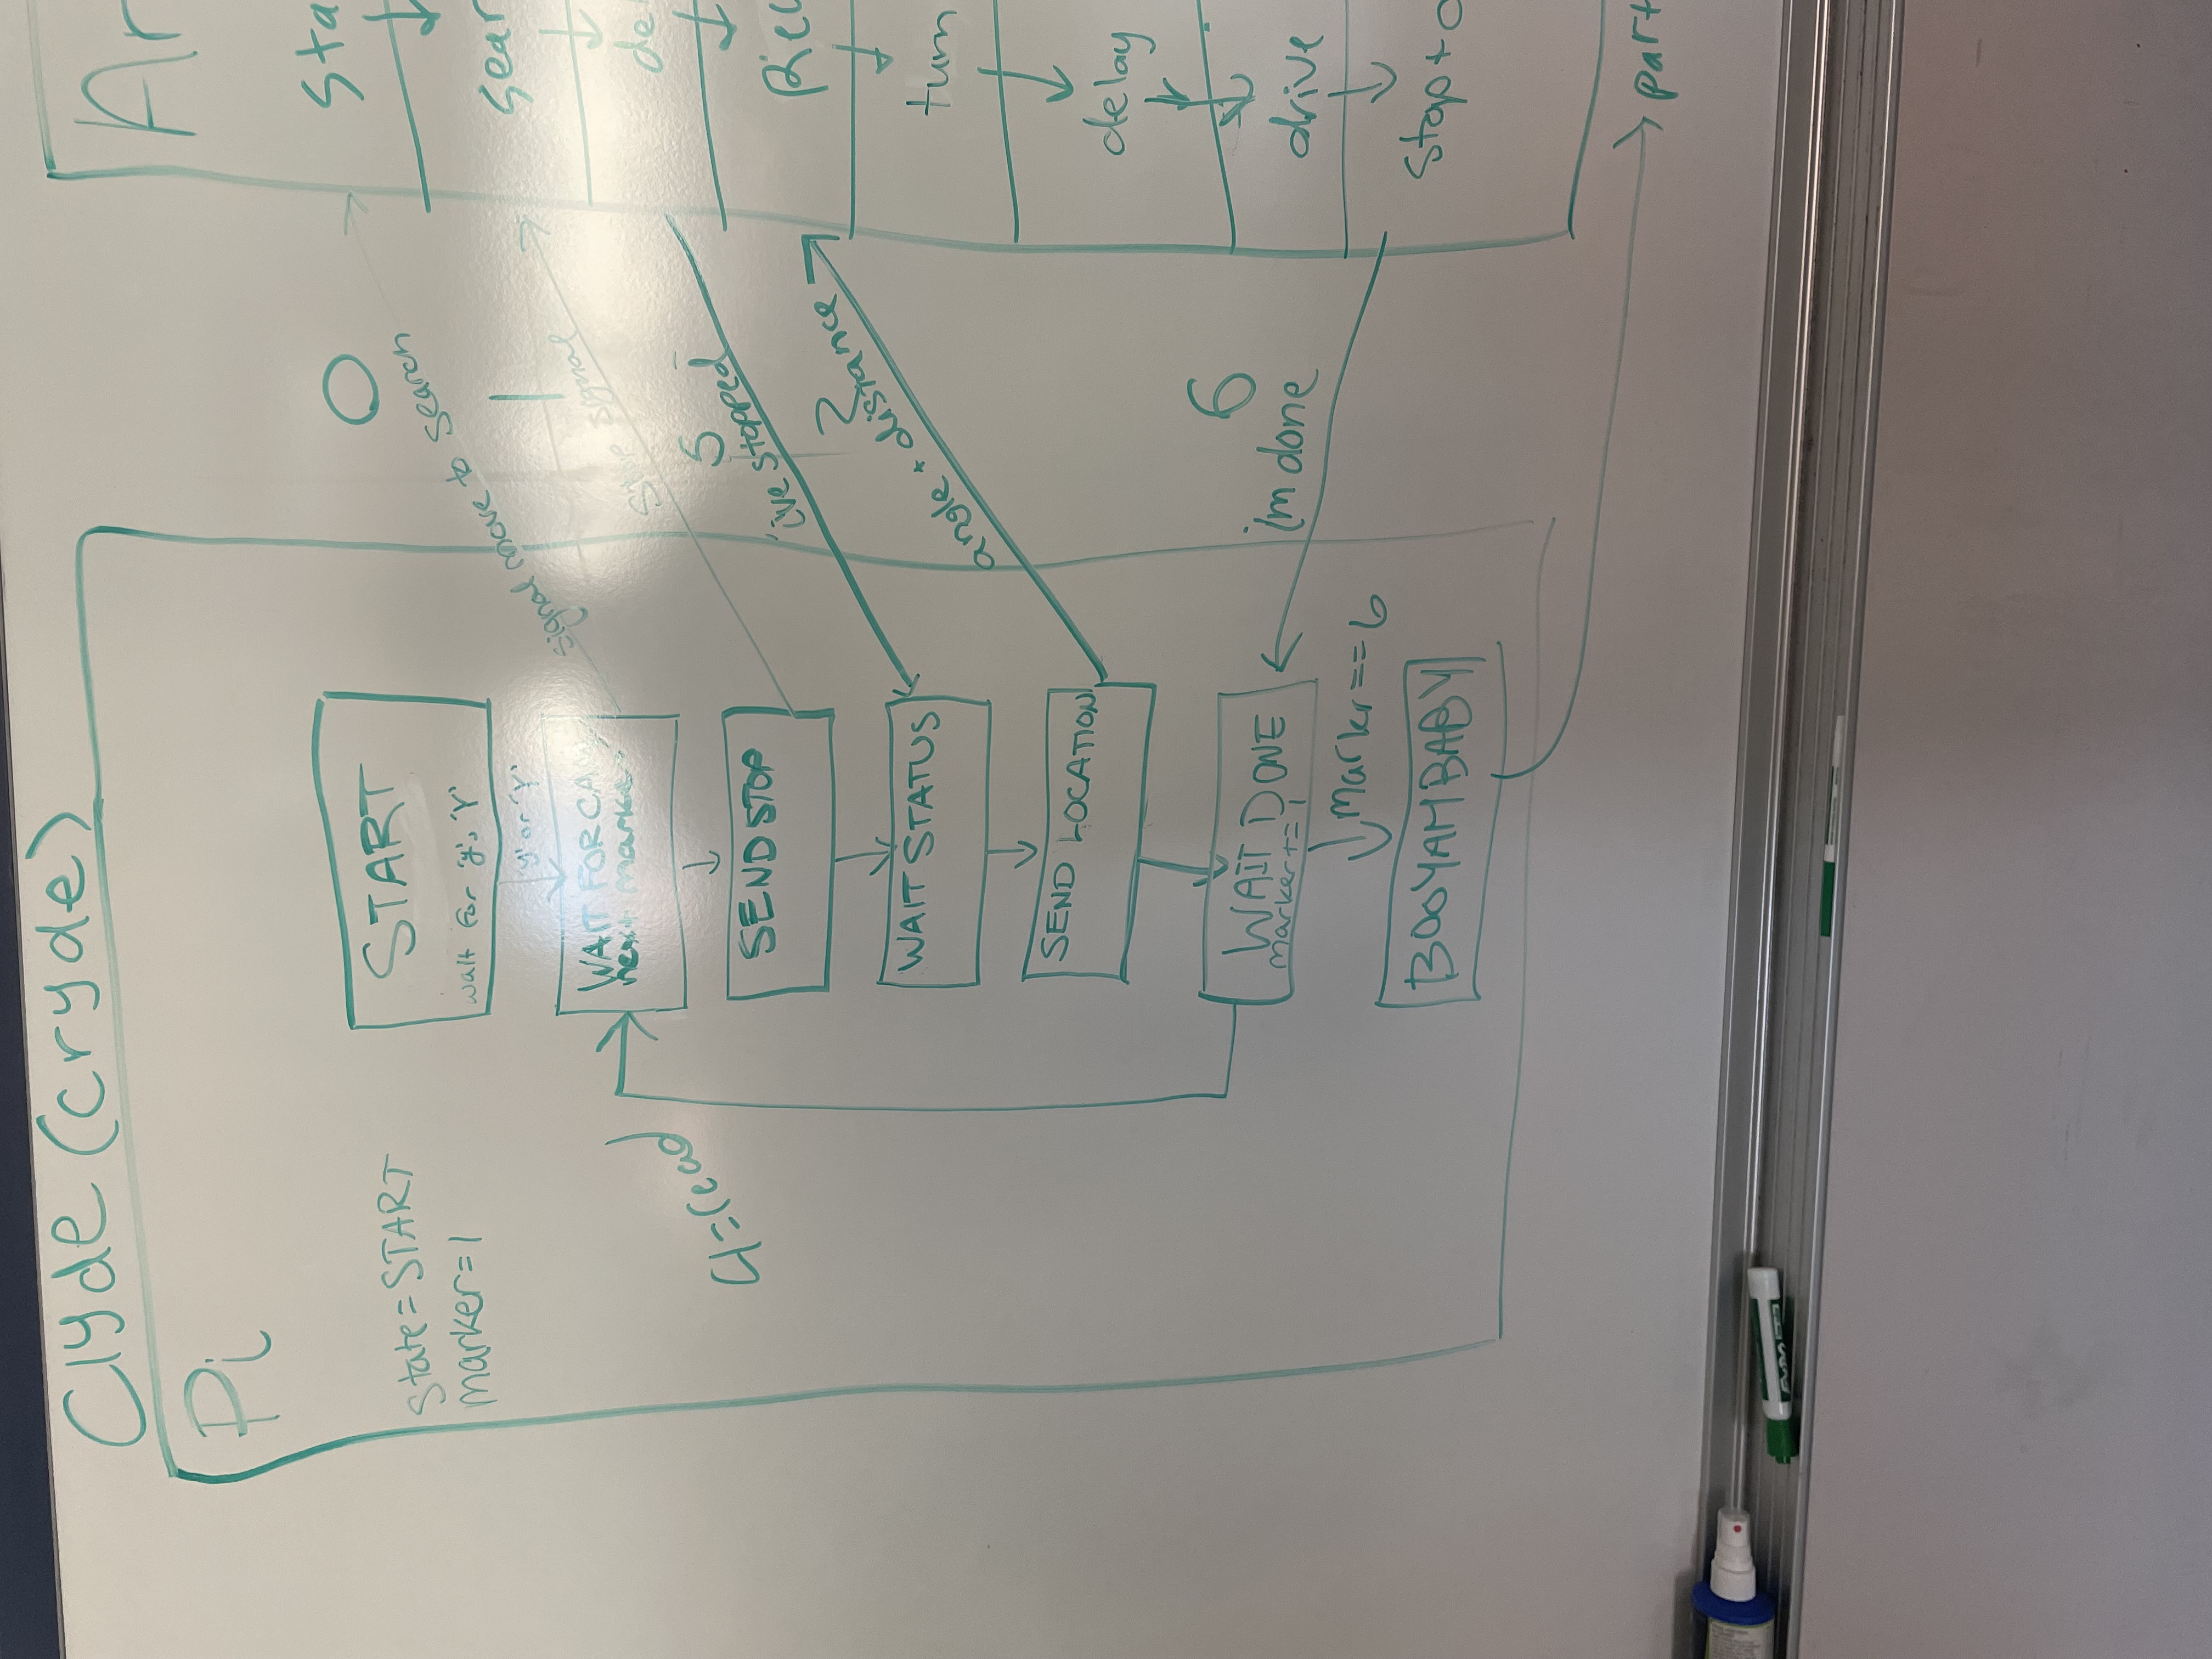 Clyde (cryde)
Pi
state=START
marker=1
START
wait for 'y', 'Y'
'y' or 'Y'
WAIT FOR
next marker
SEND STOP
WAIT STATUS
SEND LOCATION
WAIT DONE
marker+=1
markr==6
BOOYAH BABY
4=read
0
signal move to search
1
signal
5
i've stopped
2
angle + distance
6
i'm done
Ar
Sta
sear
de
turn
delay
drive
stop+
part